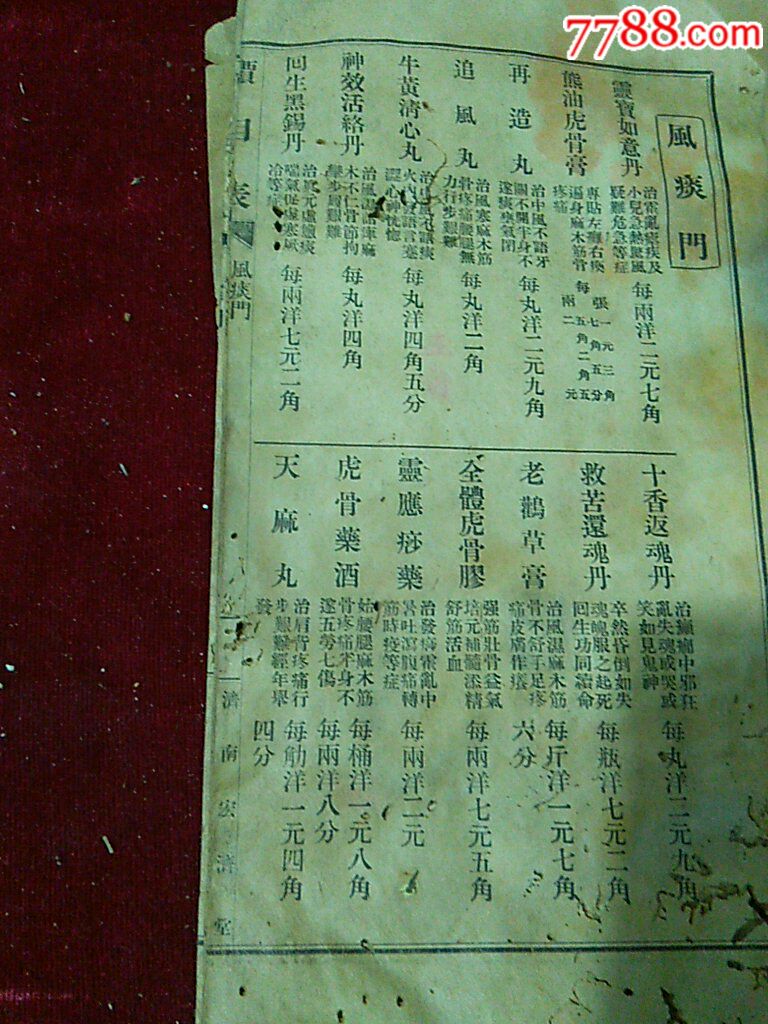 7788.com
風痰門
靈寶如意丹
治霍亂痧疾及
小兒急熱驚風
疑難危急等症
每兩洋二元七角
熊油虎骨膏
專貼左癱右瘓
遍身麻木筋骨
疼痛
每張一元三角
七角五分
五角二五
兩二元
再造丸
治中風不語牙
關不開半身不
遂痰壅氣閉
每丸洋二元九角
追風丸
治風寒麻木筋
骨疼痛腰腿無
力行步艱難
每丸洋二角
牛黃清心丸
火內發語言蹇
澀心神恍惚
每丸洋四角五分
神效活絡丹
治風濕諸痺麻
木不仁骨節拘
攣步履艱難
每丸洋四角
回生黑錫丹
治真元虛憊痰
喘氣促虛寒厥
冷等症
每兩洋七元二角
十香返魂丹
治癲癇中邪狂
亂失魂或哭或
笑如見鬼神
每丸洋二元九角
救苦還魂丹
卒然昏倒如失
魂魄服之起死
回生功同續命
每瓶洋七元二角
老鸛草膏
治風濕麻木筋
骨不舒手足疼
痛皮膚作癢
每斤洋一元七角
六分
全體虎骨膠
强筋壯骨益氣
培元補髓添精
舒筋活血
每兩洋七元五角
靈應痧藥
治發痧霍亂中
暑吐瀉腹痛轉
筋時疫等症
每兩洋二元
虎骨藥酒
治腰腿麻木筋
骨疼痛半身不
遂五勞七傷
每桶洋一元八角
每兩洋八分
天麻丸
治肩背疼痛行
步艱難經年舉
發
每觔洋一元四角
四分
價目表
風痰門
濟南宏濟堂